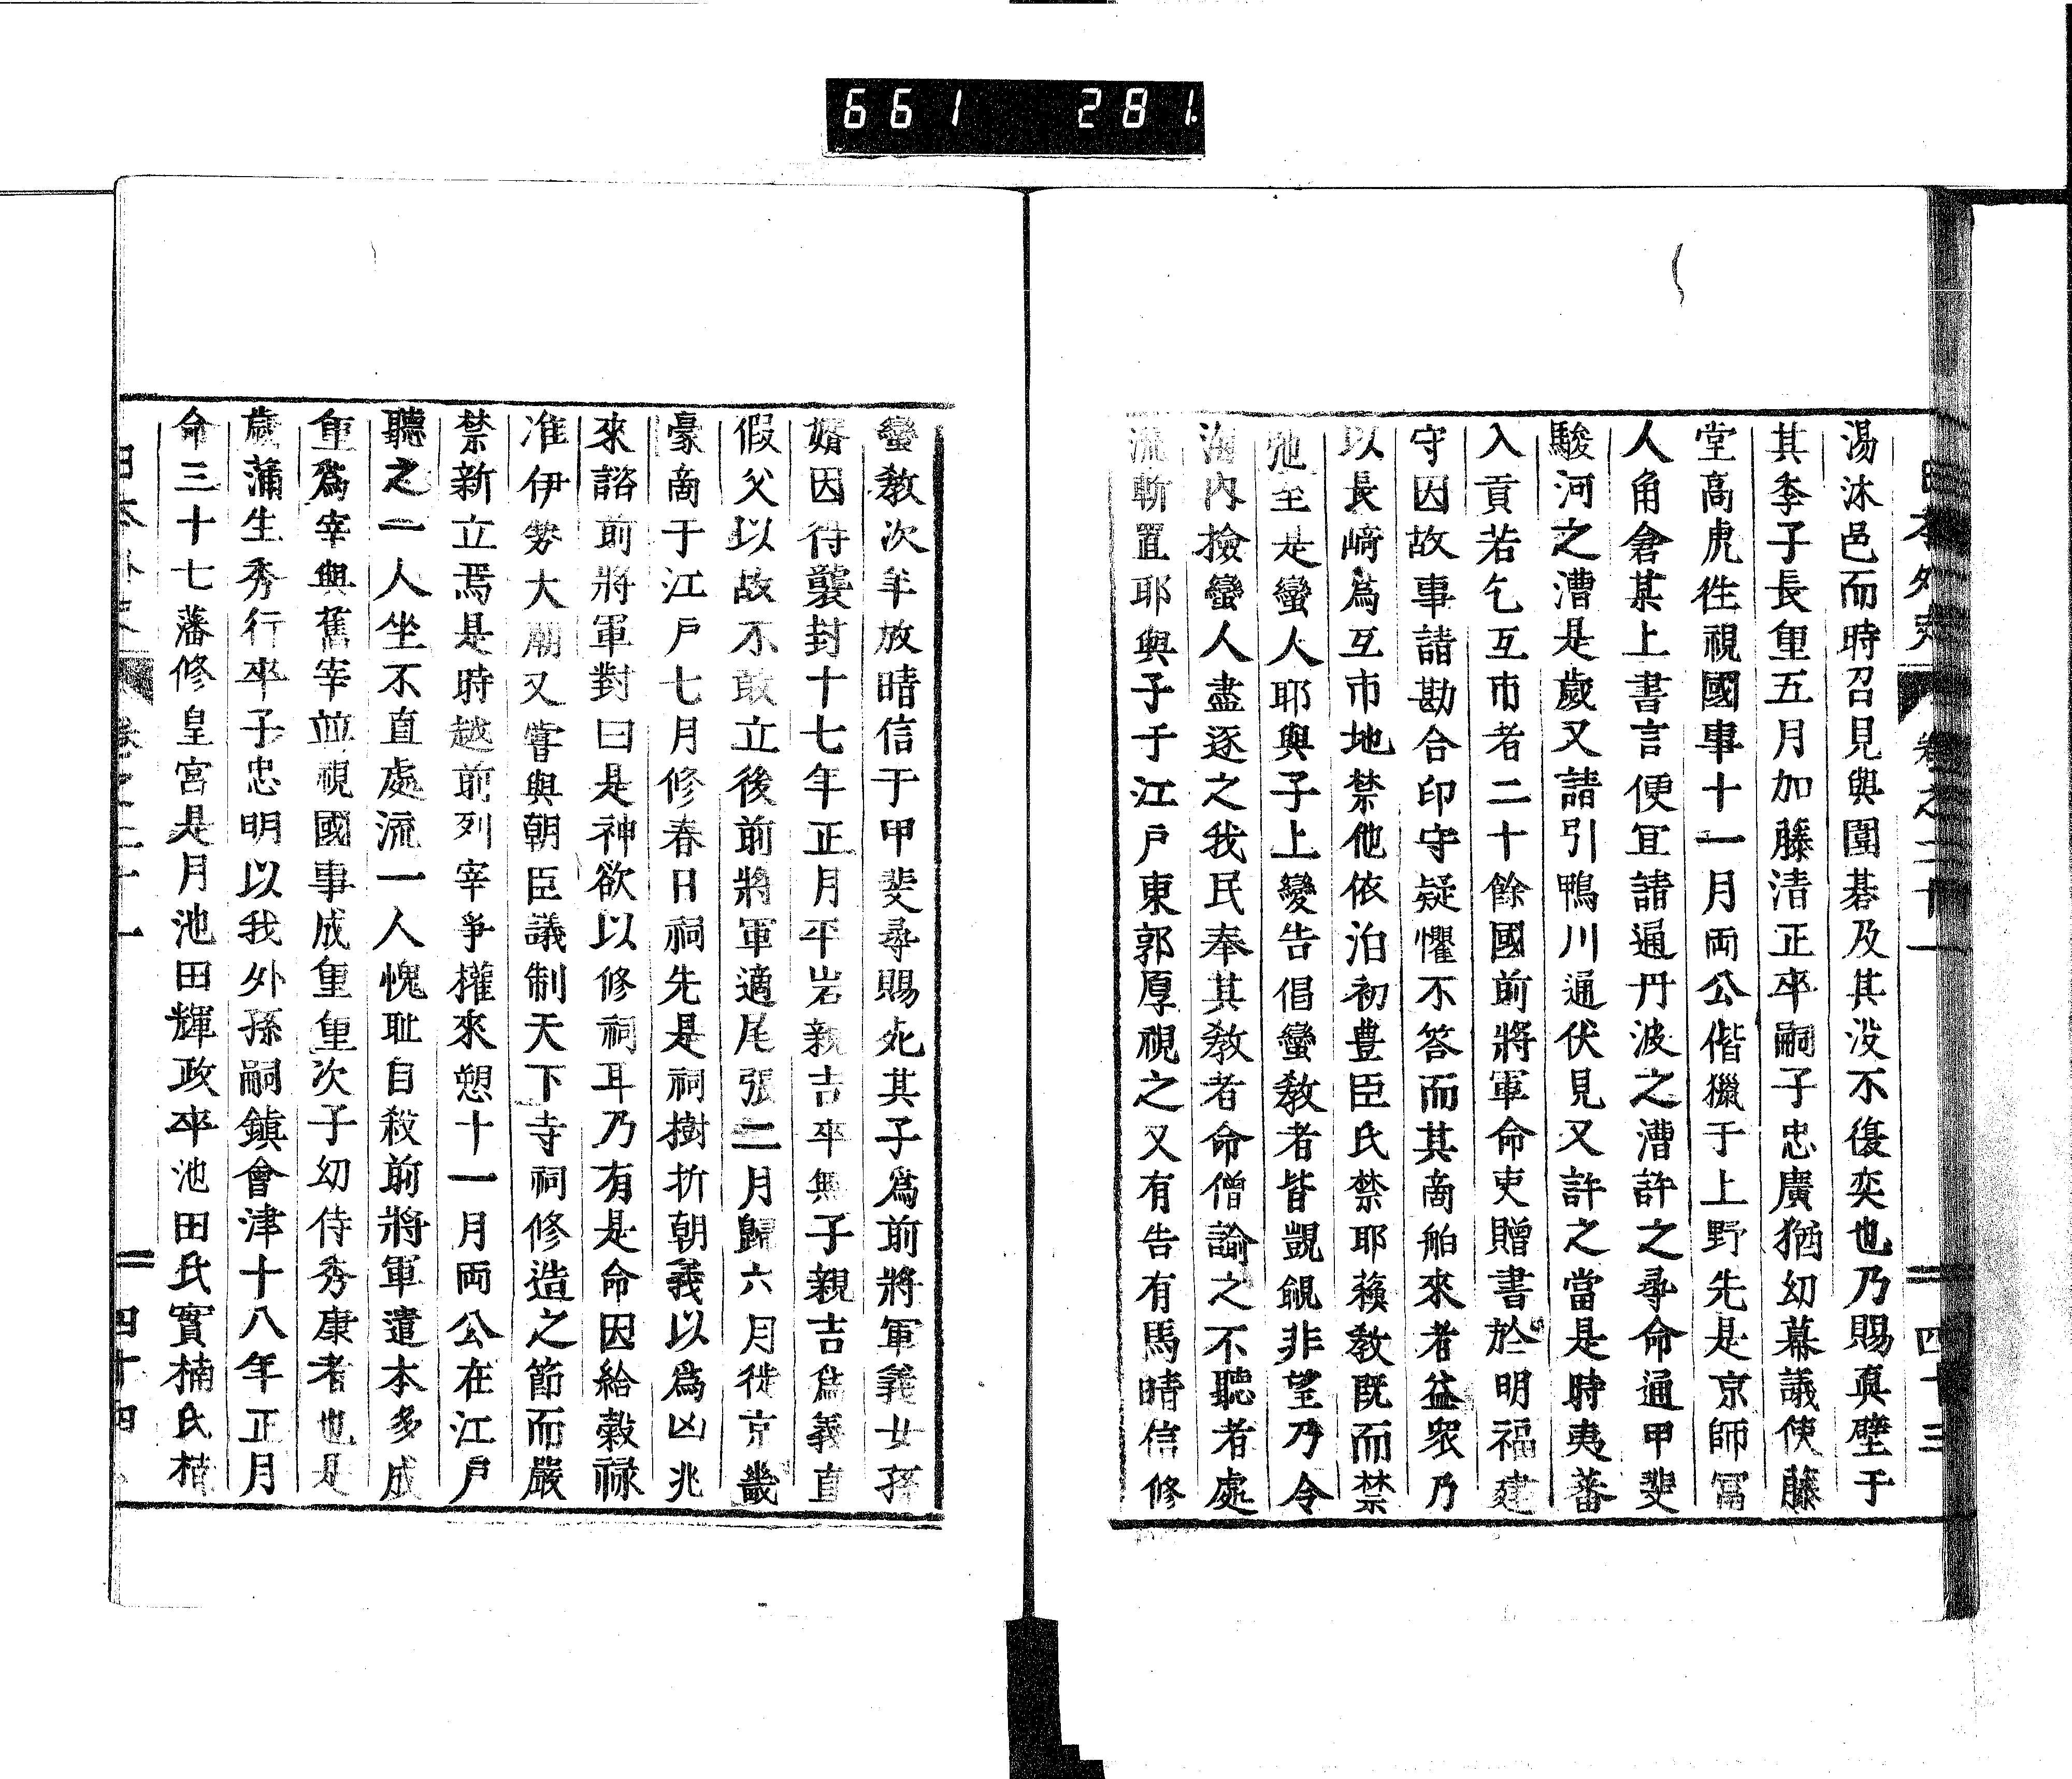 661 281.
日本外史 卷之二十一 四十三
湯沐邑而時召見與圍碁及其没不復奕也乃賜眞壁于
其季子長重五月加藤清正卒嗣子忠廣猶幼幕議使藤
堂高虎徃視國事十一月兩公偕獵于上野先是京師冨
人角倉某上書言便宜請通丹波之漕許之尋命通甲斐
駿河之漕是歲又請引鴨川通伏見又許之當是時夷蕃
入貢若乞互市者二十餘國前將軍命吏贈書於明福建
守因故事請勘合印守疑懼不答而其商舶來者益衆乃
以長﨑爲互市地禁他依泊初豊臣氏禁耶蘓教既而禁
弛至是蠻人耶與子上變告倡蠻教者皆覬覦非望乃令
海内撿蠻人盡逐之我民奉其教者命僧諭之不聽者處
流斬置耶與子于江戸東郭厚視之又有告有馬晴信修
蠻教次年放晴信于甲斐尋賜死其子爲前將軍義女孫
婿因待襲封十七年正月平岩親吉卒無子親吉爲義直
假父以故不敢立後前將軍適尾張二月歸六月徙京畿
豪商于江戸七月修春日祠先是祠樹折朝議以爲凶兆
來諮前將軍對曰是神欲以修祠耳乃有是命因給穀禄
准伊勢大廟又嘗與朝臣議制天下寺祠修造之節而嚴
禁新立焉是時越前列宰爭權來愬十一月兩公在江戸
聽之一人坐不直處流一人愧耻自殺前將軍遣本多成
重爲宰與舊宰並視國事成重重次子幼侍秀康者也是
歲蒲生秀行卒子忠明以我外孫嗣鎮會津十八年正月
命三十七藩修皇宮是月池田輝政卒池田氏實楠氏楠
日本外史 卷之二十一 四十四